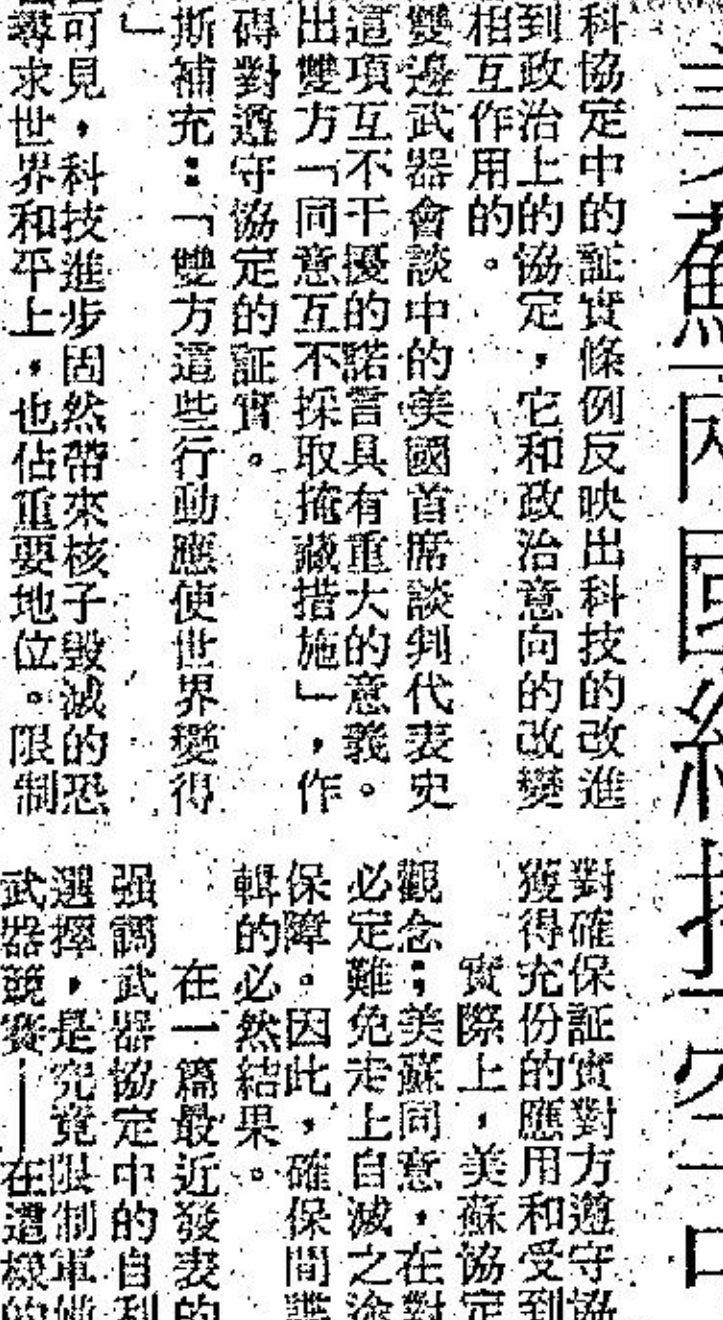 蘇兩國
科協定中的証實條例反映出科技的改進
到政治上的協定，它和政治意向的改變
相互作用的。
雙邊武器會談中的美國首席談判代表史
這項互不干擾的諾言具有重大的意義。
出雙方「同意互不採取掩藏措施」，作
碍對遵守協定的証實。
斯補充：「雙方這些行動應使世界變得
」
可見，科技進步固然帶來核子毀滅的恐
尋求世界和平上，也佔重要地位。限制
對確保証實對方遵守協
獲得充份的應用和受到
實際上，美蘇協定
觀念；美蘇同意，在對
必定難免走上自滅之途
保障。因此，確保間諜
輯的必然結果。
在一篇最近發表的
强調武器協定中的自利
選擇，是究竟限制軍備
武器競賽——在這樣的